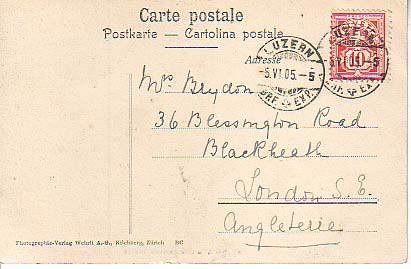 Carte postale
Postkarte — Cartolina postale
Adresse
LUZERN
-5.VI.05.-5
BRF. EXP.
LUZERN
BRF. EXP.
Mrs Brydon
36 Blessington Road
Blackheath
London S. E.
Angleterre
Photographie-Verlag Wehrli A.-G., Kilchberg, Zürich